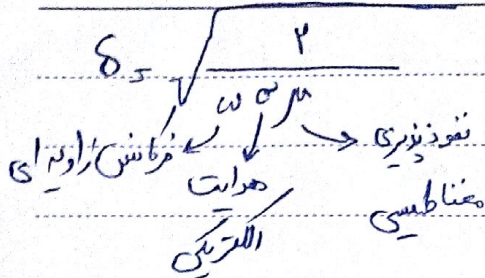 δ = √(۲ / ω σ μ)
فرکانس زاویه ای
هدایت الکتریکی
نفوذپذیری مغناطیسی